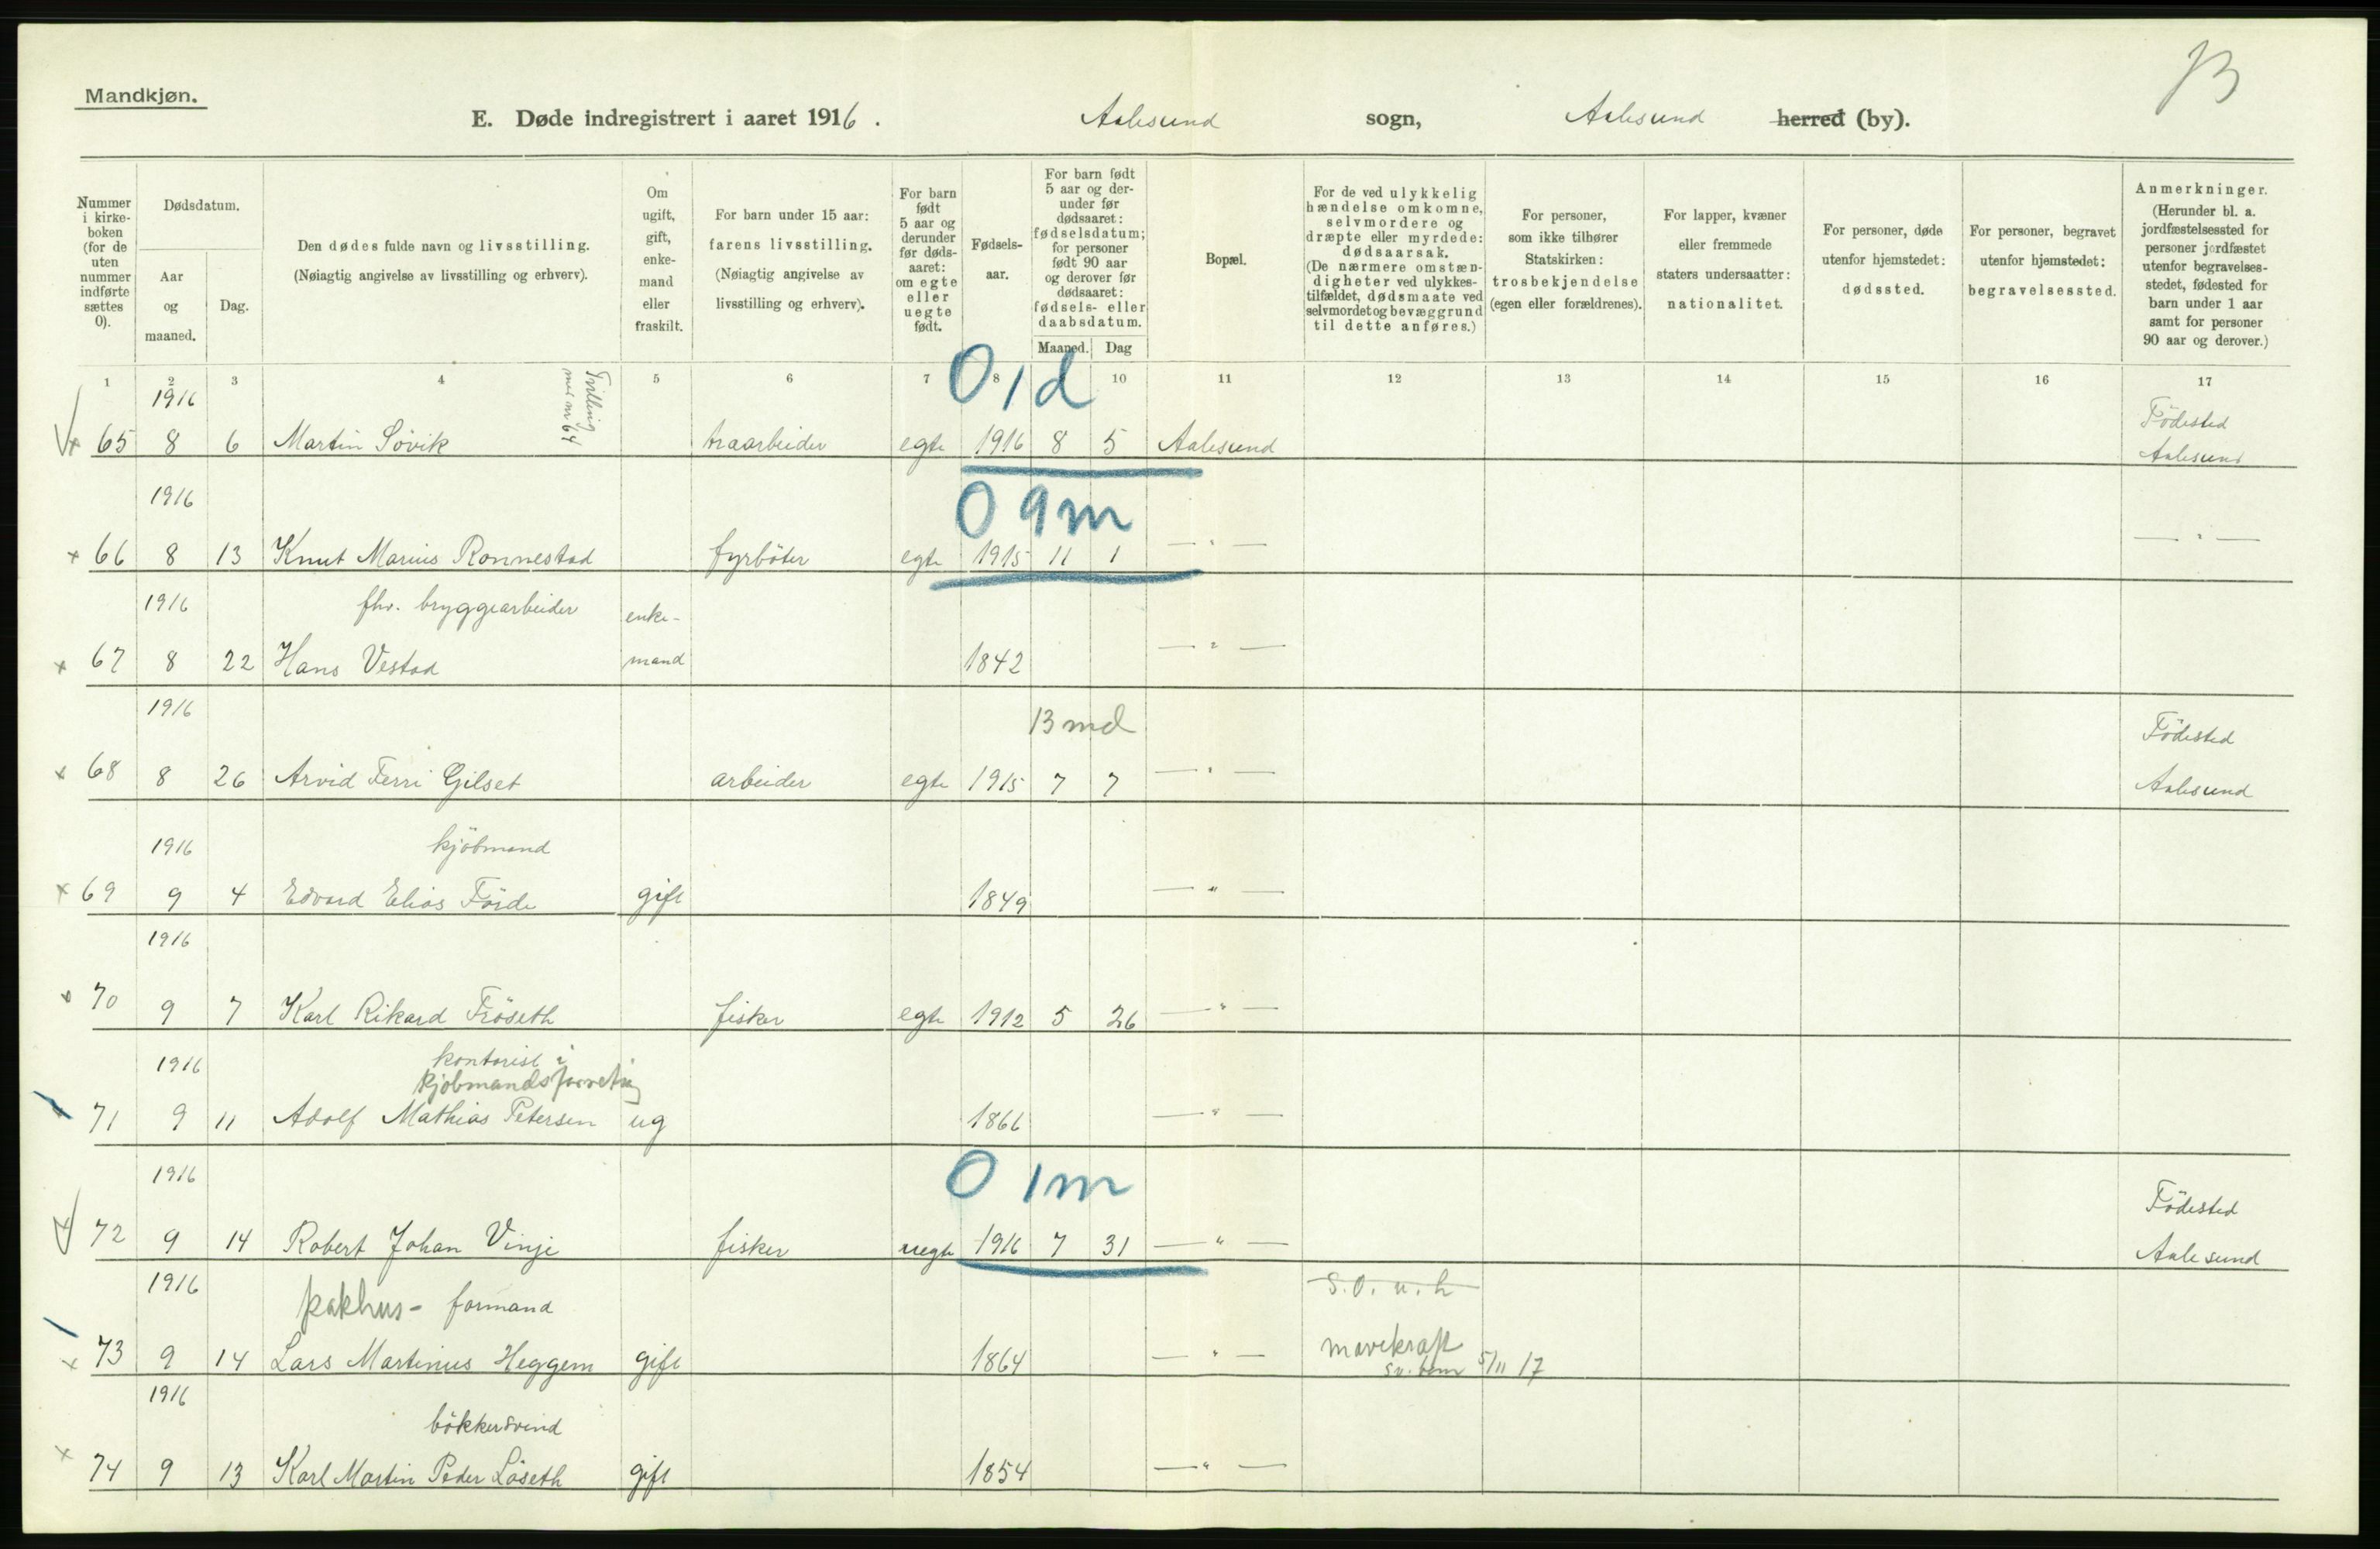 Mandkjøn.
73
E. Døde indregistrert i aaret 1916. Aalesund sogn, Aalesund herred (by).
Nummer i kirke-boken (for de uten nummer indførte sættes 0).
Dødsdatum.
Aar og maaned.
Dag.
Den dødes fulde navn og livsstilling.
(Nøiagtig angivelse av livsstilling og erhverv).
Om ugift, gift, enke-mand eller fraskilt.
For barn under 15 aar: farens livsstilling. (Nøiagtig angivelse av livsstilling og erhverv).
For barn født 5 aar og derunder før døds-aaret: om egte eller uegte født.
Fødsels-aar.
For barn født 5 aar og der-under før dødsaaret: fødselsdatum; for personer født 90 aar og derover før dødsaaret: fødsels- eller daabsdatum.
Maaned. Dag
Bopæl.
For de ved ulykkelig hændelse omkomne, selvmordere og dræpte eller myrdede: dødsaarsak. (De nærmere omstæn-digheter ved ulykkes-tilfældet, dødsmaate ved selvmordet og bevæggrund til dette anføres.)
For personer, som ikke tilhører Statskirken: trosbekjendelse (egen eller forældrenes).
For lapper, kvæner eller fremmede staters undersaatter: nationalitet.
For personer, døde utenfor hjemstedet: dødssted.
For personer, begravet utenfor hjemstedet: begravelsessted.
Anmerkninger. (Herunder bl. a. jordfæstelsessted for personer jordfæstet utenfor begravelses-stedet, fødested for barn under 1 aar samt for personer 90 aar og derover.)
1 2 3 4 5 6 7 8 10 11 12 13 14 15 16 17
1916 Tvilling med nr 64 0 1 d Födested
65 8 6 Martin Sövik traarbeider egte 1916 8 5 Aalesund Aalesund
1916 0 9m
66 8 13 Knut Marius Ronnestad fyrböter egte 1915 11 1 — " — — " —
1916 fhv. bryggearbeider enke-
67 8 22 Hans Vestad mand 1842 — " —
1916 13 md Födested
68 8 26 Arvid Ferri Gilset arbeider egte 1915 7 7 — " — Aalesund
1916 kjöbmand
69 9 4 Edvard Elias Förde gift 1849 — " —
1916
70 9 7 Karl Rikard Fröseth fisker egte 1912 5 26 — " —
1916 kontorist i
kjöbmandsforretning
71 9 11 Adolf Mathias Petersen ug 1866 — " —
1916 0 1m Födested
72 9 14 Robert Johan Vinje fisker uegte 1916 7 31 — " — Aalesund
1916 pakhus- formand S.O. u. h
73 9 14 Lars Martinus Heggem gift 1864 — " — mavekræft
sv. 5/11 17
1916 bökkersvend
74 9 13 Karl Martin Peder Löseth gift 1854 — " —